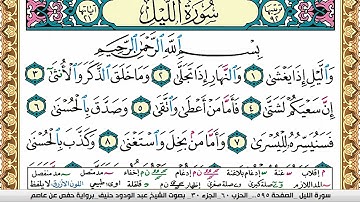 سُورَةُ اللَّيْلِ
بِسْمِ اللَّهِ الرَّحْمَٰنِ الرَّحِيمِ
وَالَّيْلِ إِذَا يَغْشَىٰ ١ وَالنَّهَارِ إِذَا تَجَلَّىٰ ٢ وَمَا خَلَقَ الذَّكَرَ وَالْأُنثَىٰ ٣
إِنَّ سَعْيَكُمْ لَشَتَّىٰ ٤ فَأَمَّا مَنْ أَعْطَىٰ وَاتَّقَىٰ ٥ وَصَدَّقَ بِالْحُسْنَىٰ ٦
فَسَنُيَسِّرُهُ لِلْيُسْرَىٰ ٧ وَأَمَّا مَن بَخِلَ وَاسْتَغْنَىٰ ٨ وَكَذَّبَ بِالْحُسْنَىٰ
سورة الليل الصفحة ٥٩٥ الحزب ٦٠ الجزء ٣٠ بصوت الشيخ عبد الودود حنيف برواية حفص عن عاصم